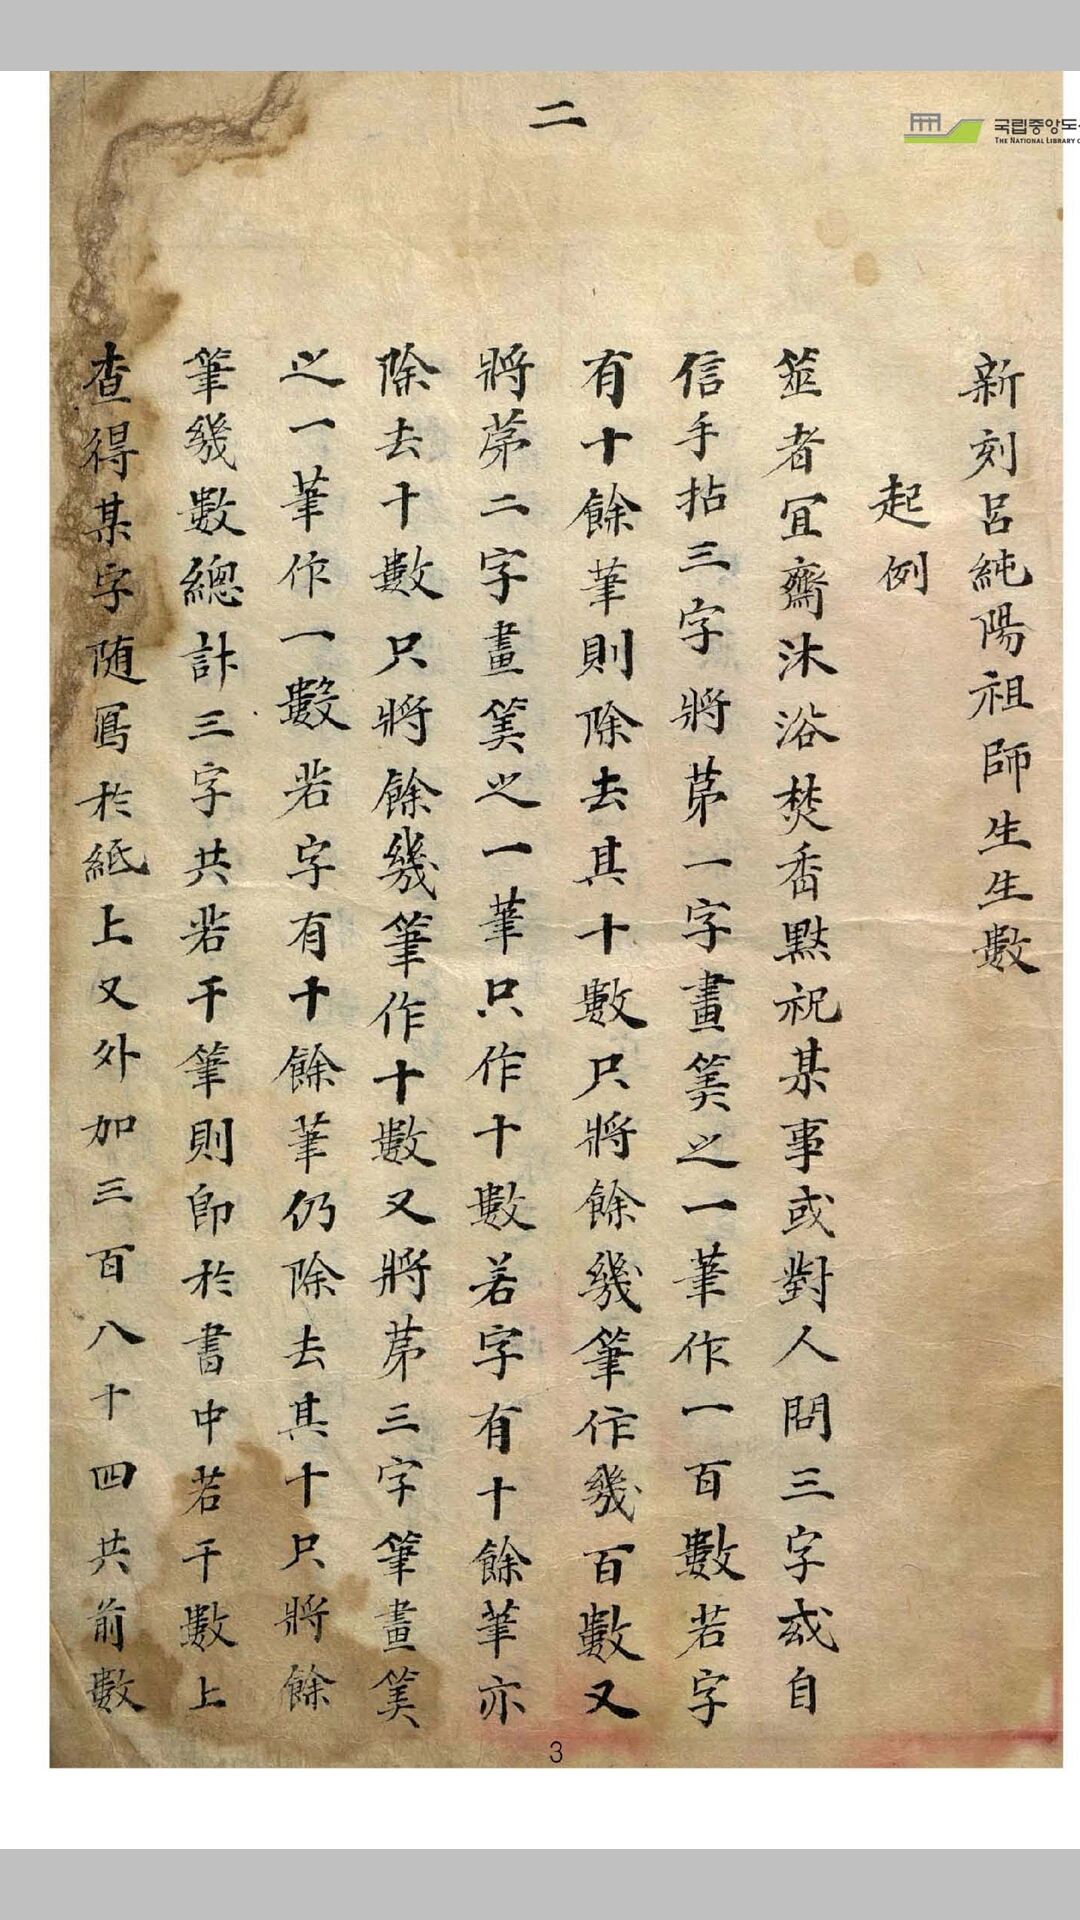 二
국립중앙도
THE NATIONAL LIBRARY O
新刻呂純陽祖師生生數
起例
筮者宜齋沐浴焚香默祝某事或對人問三字或自
信手拈三字將苐一字畫筭之一筆作一百數若字
有十餘筆則除去其十數只將餘幾筆作幾百數又
將苐二字畫筭之一筆只作十數若字有十餘筆亦
除去十數只將餘幾筆作十數又將苐三字筆畫筭
之一筆作一數若字有十餘筆仍除去其十只將餘
筆幾數總計三字共若干筆則卽於書中若干數上
查得某字随寫於紙上又外加三百八十四共前數
3